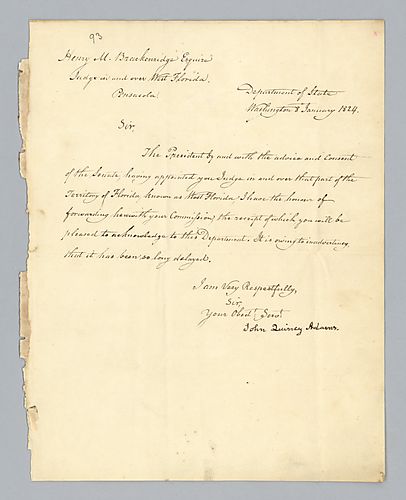 93
Henry M. Brackenridge Esquire
Judge in and over West Florida.
Pensacola.
Department of State
Washington 8 January 1824.
Sir,
The President by and with the advice and Consent
of the Senate having appointed you Judge in and over that part of the
Territory of Florida, known as West Florida, I have the honour of
forwarding herewith your Commission, the receipt of which you will be
pleased to acknowledge to this Department. It is owing to inadvertency
that it has been so long delayed.
I am Very Respectfully,
Sir,
Your Obedt. Servt.
John Quincy Adams.